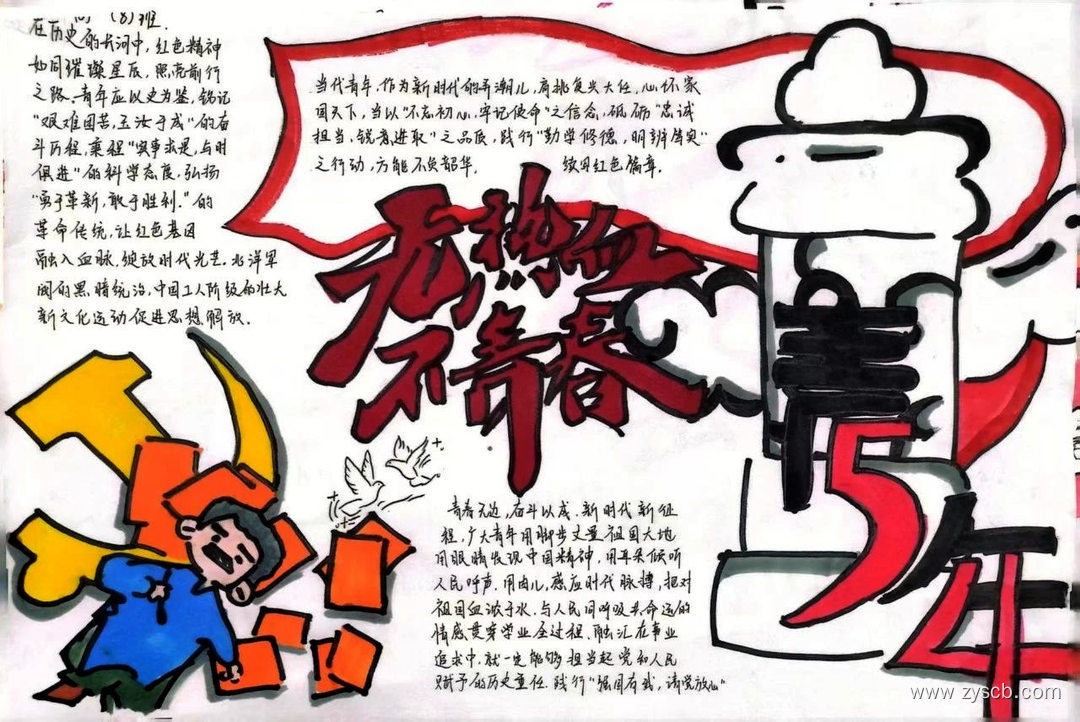 (8)班.
在历史的长河中,红色精神
如同璀璨星辰,照亮前行
之路.青年应以史为鉴,铭记
"艰难困苦,玉汝于成"的奋
斗历程,秉程"实事求是,与时
俱进"的科学态度,弘扬
"勇于革新,敢于胜利."的
革命传统,让红色基因
融入血脉,绽放时代光芒.北洋军
阀的黑暗统治,中国工人阶级的壮大
新文化运动促进思想解放.
当代青年,作为新时代的弄潮儿,肩挑复兴大任,心怀家
国天下,当以"不忘初心,牢记使命"之信念,砥砺"忠诚
担当,锐意进取"之品质,践行"勤学修德,明辨笃实"
之行动,方能不负韶华, 续写红色篇章.
无热血
不青春
青春无边,奋斗以成.新时代新征
程,广大青年用脚步丈量祖国大地
用眼睛发现中国精神,用耳朵倾听
人民呼声,用内儿,感应时代脉搏,把对
祖国血浓于水、与人民同呼吸共命运的
情感贯穿学业全过程、融汇在事业
追求中,就一定能够担当起党和人民
赋予的历史重任,践行"强国有我,请党放心"
5年
www.zyscb.com